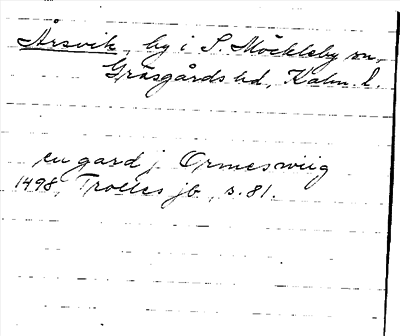 Årsvik, by i S. Möckleby sn,
Gräsgårds hd, Kalm. l.
en gard j Ormeswiig
1498, Trolles jb, s. 81.